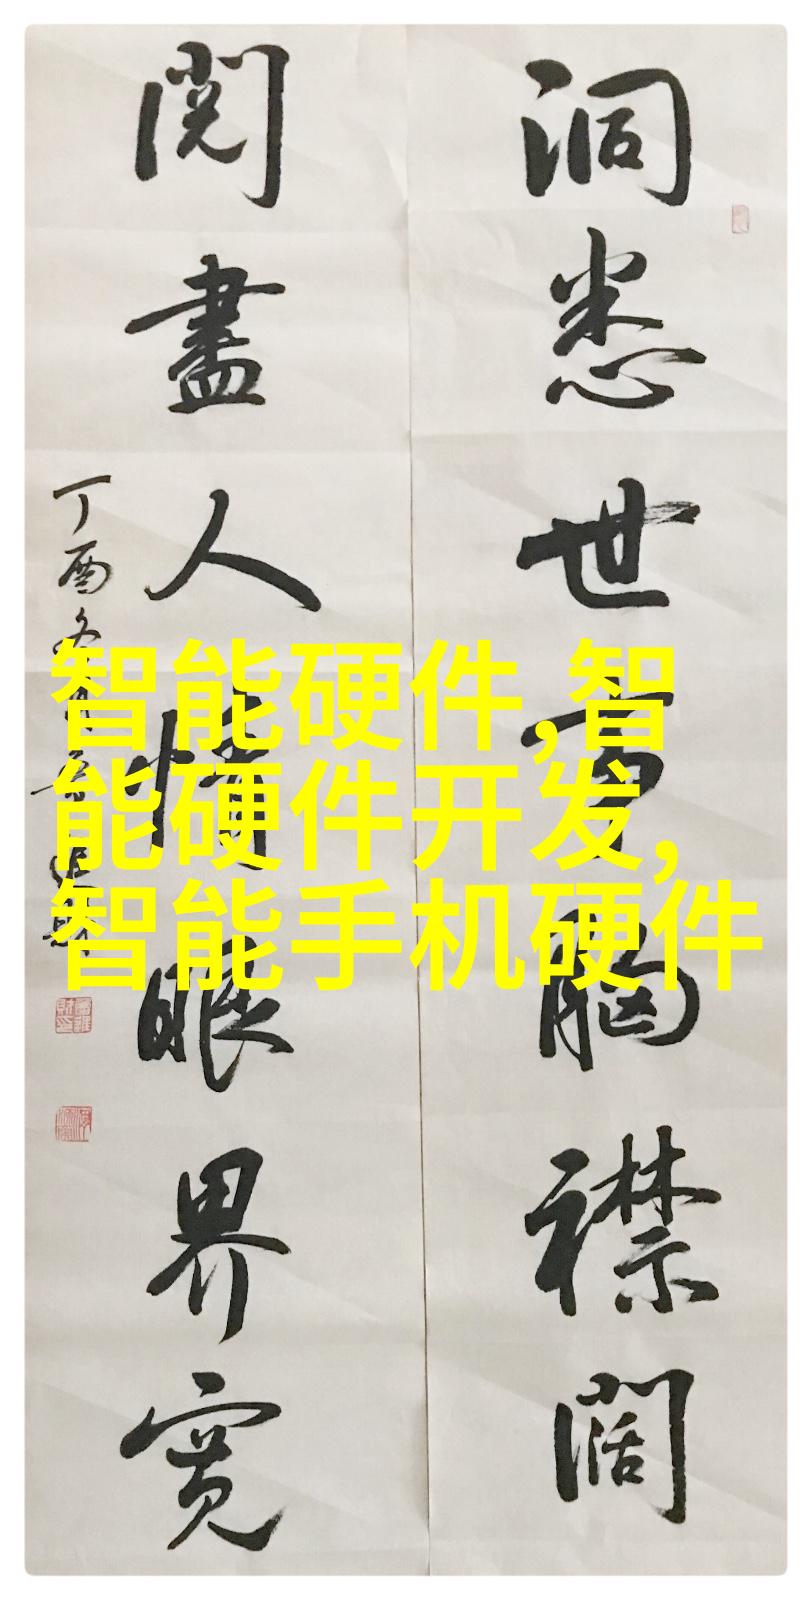 洞悉世事胸襟闊
閲盡人情眼界寬
丁酉冬
智能硬件,智
能硬件开发,
智能手机硬件